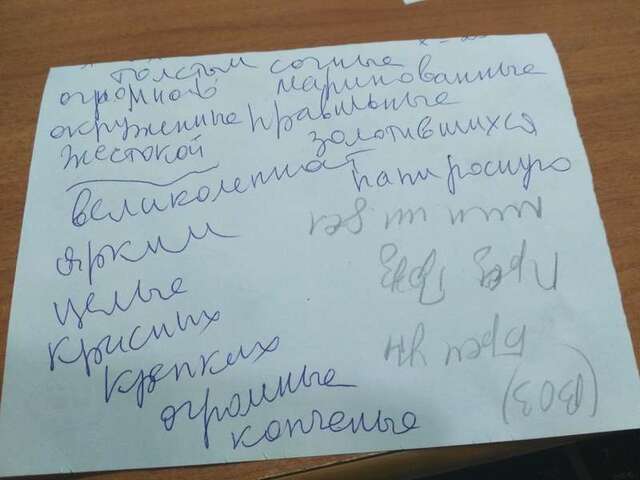 толстым сочные
огромного маринованные
окруженные правильные
жестокой золотившихся
великолепная папиросную
ярким
целые
красных
крепких
огромные
копченые
(ВОЗ)